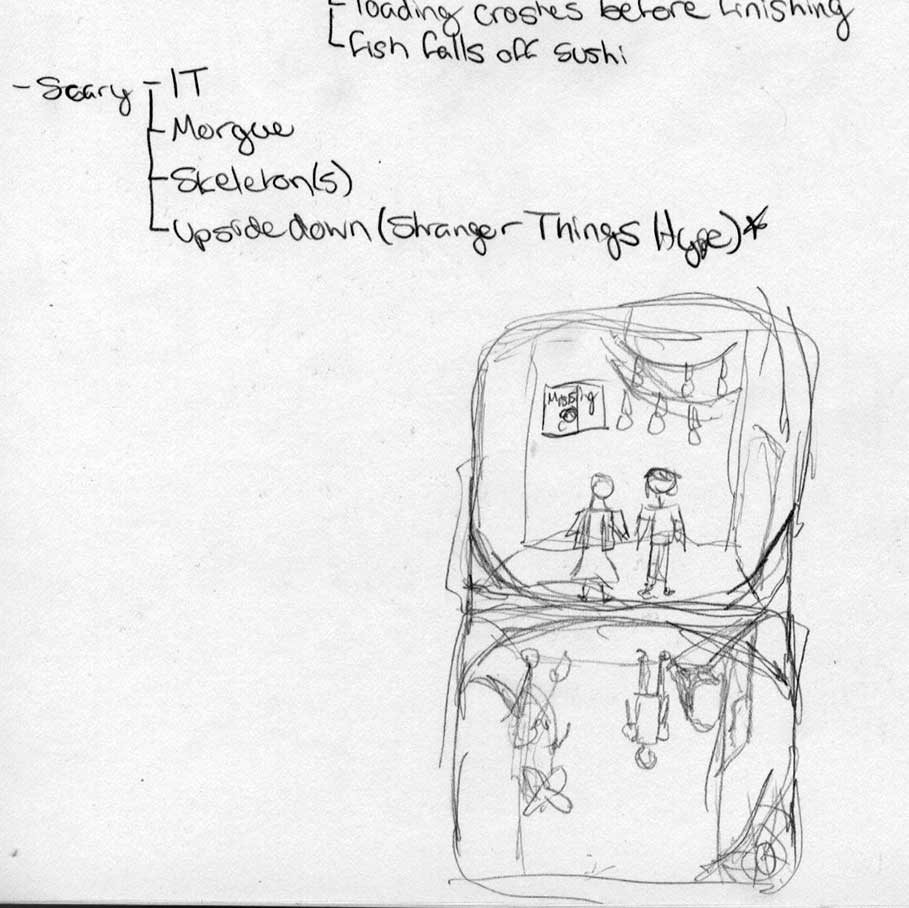 loading crashes before finishing
fish falls off sushi
- Scary - IT
Morgue
Skeleton(s)
Upside down (Stranger Things Hype)*
Missing